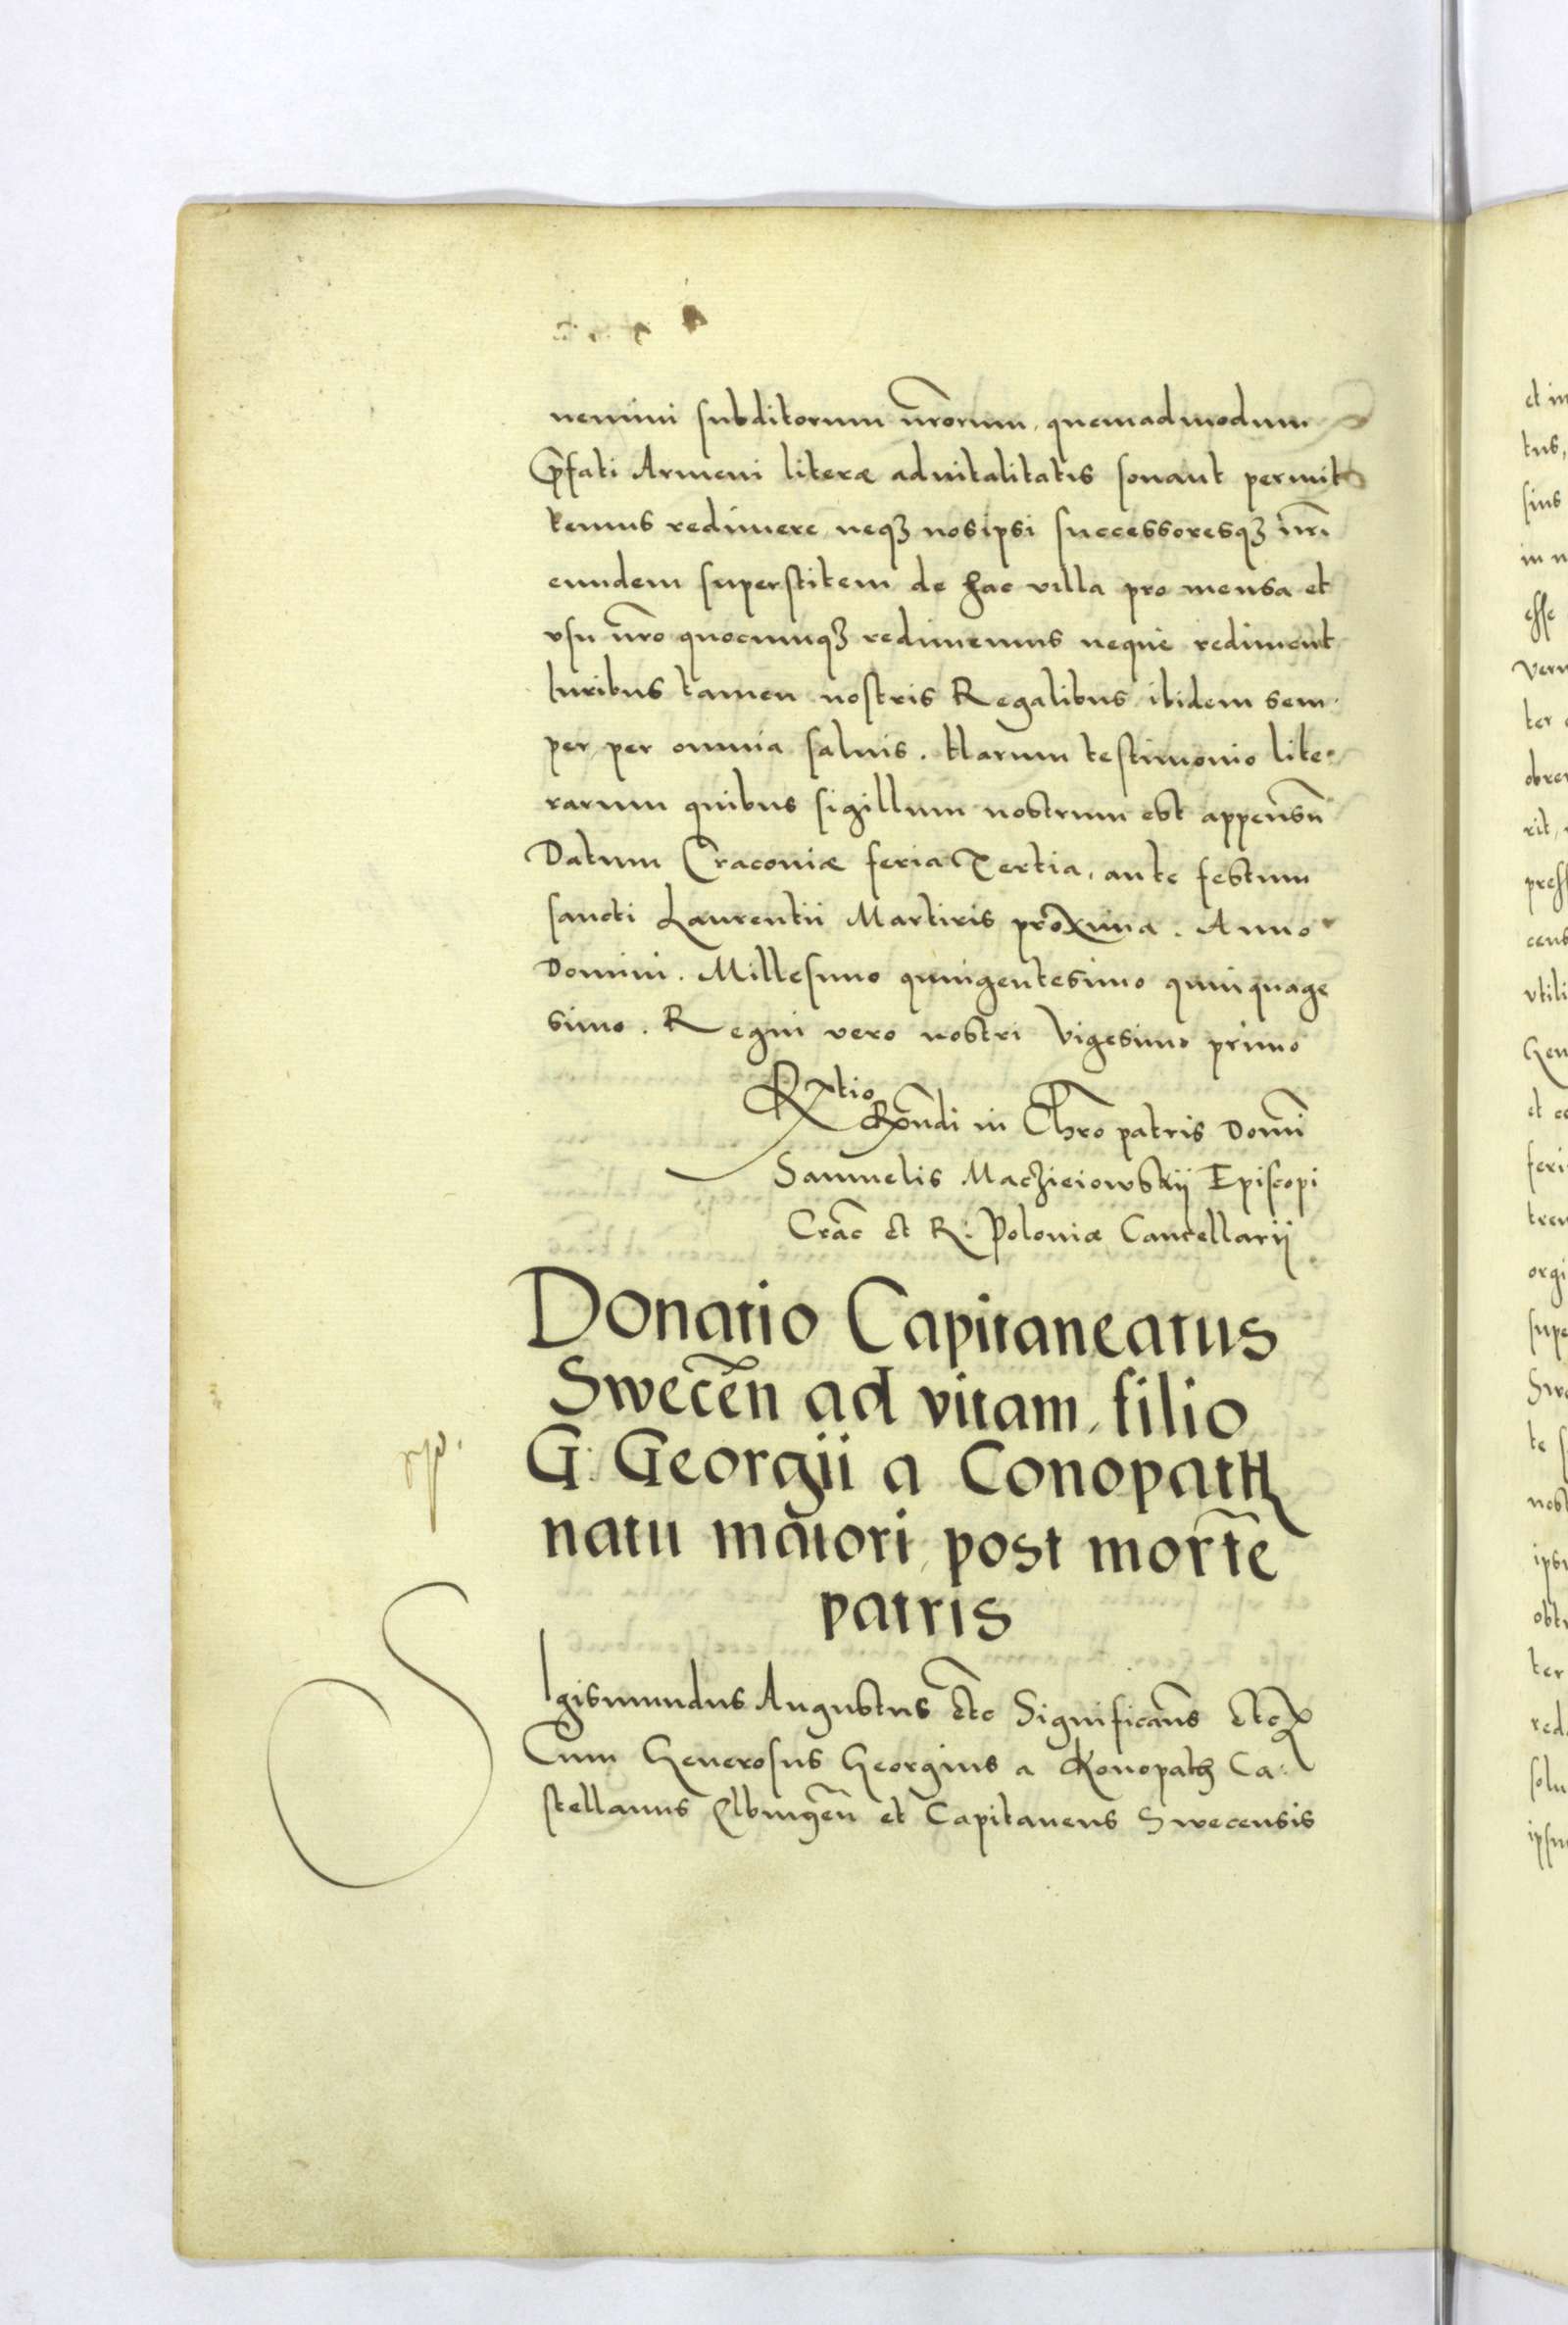 nemini subditorum nr̃orum, quemadmodum
p̃fati Armeni literæ aduitalitatis sonant permit
temus redimere, neqꝫ nosipsi successoresqꝫ nr̃i
eundem superstitem de hac villa pro mensa et
vsu nr̃o quocumqꝫ redimemus neque rediment
Iuribus tamen nostris Regalibus ibidem sem
per per omnia saluis. Harum testimonio lite
rarum quibus sigillum nostrum est appensũ
Datum Cracoviæ feria Tertia, ante festum
sancti Laurentii Martiris proxima. Anno
Domini. Millesimo quingentesimo quinquage
simo. Regni vero nostri Vigesimo primo
Rl̃tio
Rr̃ndi in Chr̃o patris Domĩ
Samuelis Maczieiowskij Episcopi
Crac̃ et R: Poloniæ Cancellarij
Donatio Capitaneatus
Swecẽn ad vitam, filio
G: Georgii a Conopath
natu maiori, post mortẽ
patris
SIgismundus Augustus etc̃ Significam̃s etc̃
Cum Generosus Georgius a Konopath Ca:
stellanus Elbingẽn et Capitaneus Swecensis